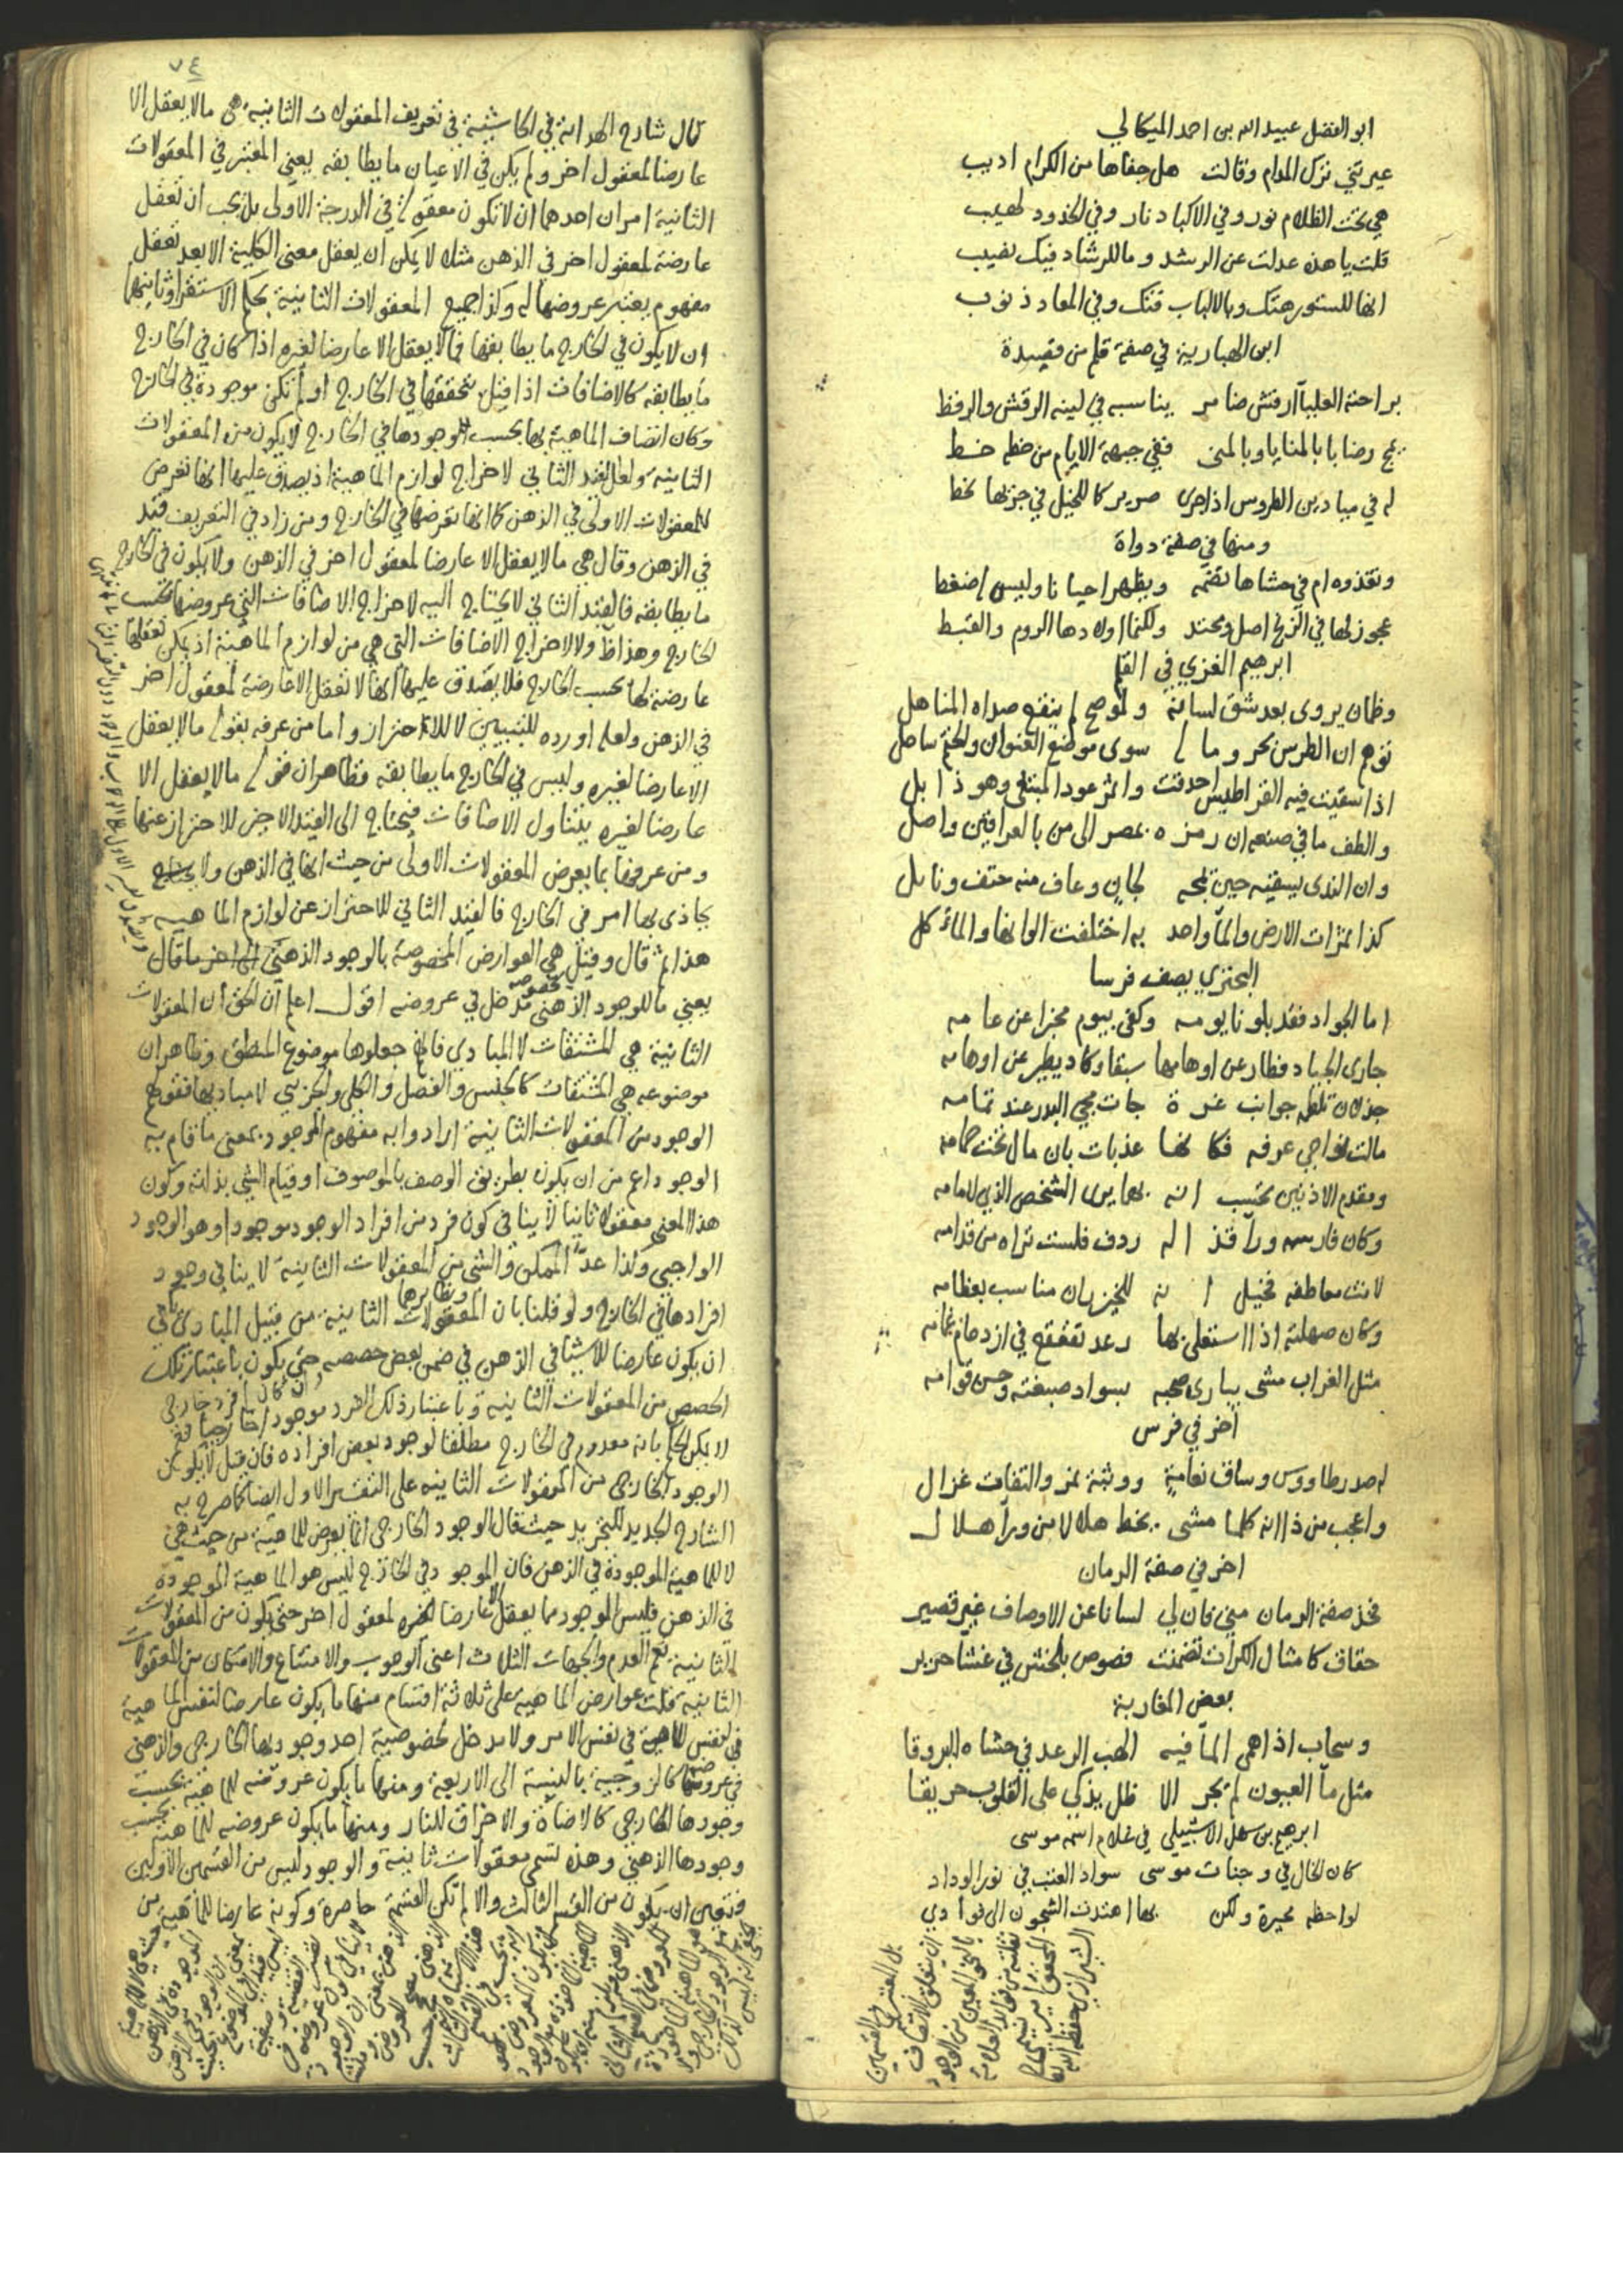 ابو الفضل عبيد الله بن احمد الميكالي
عيرتني ترك المدام وقالت هل جفاها من الكرام اديب
هي تحت الظلام نور وفي الاكباد نار وفي الخدود لهيب
قلت يا هذه عدلت عن الرشد وما للرشاد فيك نصيب
انها للستور هتك وبالالباب فتك وفي المعاد ذنوب
ابن الهبارية في صفة قلم من قصيدة
براحته العلياء ارقش ضامر يناسبه في لينه الرقش والرقط
يمج رضابا بالمنايا وبالمنى ففي جبهة الايام من خطه خط
له في ميادين الطروس اذا جرى صرير كما للخيل في جريها نحط
ومنها في صفة دواة
وتغذوه ام في حشاها تضمه ويظهر احيانا وليس
عجوز لها في الزنج اصل ومحتد ولكنما اولادها الروم والقبط
ابرهيم الغزي في القلم
وظمان يروى بعد شق لسانه ولو صح لم ينقع صداه المناهل
توهم ان الطرس بحر وما له سوى موضع العنوان والختم ساحل
اذا سقيت فيه القراطيس احدقت واثمر عود المبتلى وهو ذابل
والطف ما في صنعه ان رمزه بمصر الى من بالعراقين واصل
وان الذي يسقيه حين يمجه لجان وعاف منه حتف ونايل
كذا ثمرات الارض والماء واحد به اختلفت الوانها والمأكل
البحتري يصف فرسا
اما الجواد فقد بلونا يومه وكفى بيوم مخبرا عن عامه
جارى الجياد فطار عن اوهامها سبقا وكاد يطير عن اوهامه
جذلان تلطمه جوانب غرة جات مجي البدر عند تمامه
مالت نواحي عرفه فكانها عذبات بان مال تحت حمامه
ومقدم الاذنين تحسب انه بهما يرى الشخص الذي لامامه
وكان فارسه وراء قذاله ردف فلست تراه من قدامه
لانت معاطفه فخيل انه للخيزران مناسب بعظامه
وكان صهلته اذا استعلى بها رعد تقعقع في ازدحام غمامه
مثل الغراب مشى يباري صحبه بسواد صبغته وحسن قوامه
اخر في فرس
له صدر طاووس وساق نعامة ووثبة نمر والتفات غزال
واعجب من ذا انه كلما مشى يخط هلالا من وراء هلال
اخر في صفة الرمان
خذ صفة الرمان مني فان لي لسانا عن الاوصاف غير قصير
حقاق كامثال الكرات تضمنت فصوص بلخش في غشا حرير
بعض المغاربة
وسحاب اذا همى الماء فيه الهب الرعد في حشاه البروقا
مثل ماء العيون لم يجر الا ظل يذكي على القلوب حريقا
ابرهيم بن سهل الاشبيلي في غلام اسمه موسى
كان الخال في وجنات موسى سواد العتب في نور الوداد
لواحظه محيرة ولكن بها اهتدت الشجون الى فوادي
٧٤
قال شارح الهداية في الحاشية في تعريف المعقولات الثانية هي ما لا يعقل الا
عارضا لمعقول اخر ولم يكن في الاعيان ما يطابقه يعني المعتبر في المعقولات
الثانية امران احدهما ان لا تكون معقولة في الدرجة الاولى بل يجب ان تعقل
عارضة لمعقول اخر في الذهن مثلا لا يمكن ان يعقل معنى الكلية الا بعد تعقل
مفهوم يعتبر عروضها له وكذا جميع المعقولات الثانية بحكم الاستقراء وثانيهما
ان لا يكون في الخارج ما يطابقها فما لا يعقل الا عارضا لغيره اذا كان في الخارج
ما يطابقه كالاضافات اذا قيل بتحققها في الخارج او لم تكن موجودة في الخارج
وكان اتصاف الماهية بها بحسب وجودها في الخارج لا يكون من المعقولات
الثانية ولعل القيد الثاني لاخراج لوازم الماهية اذ يصدق عليها انها تعرض
للمعقولات الاولى في الذهن كما انها تعرضها في الخارج ومن زاد في التعريف قيد
في الذهن وقال هي ما لا يعقل الا عارضا لمعقول اخر في الذهن ولا يكون في الخارج
ما يطابقه فالقيد الثاني لا يحتاج اليه لاخراج الاضافات التي عروضها بحسب
الخارج وهذا ظ ولا لاخراج الاضافات التي هي من لوازم الماهية اذ يمكن تعقلها
عارضة لها بحسب الخارج فلا يصدق عليها انها لا تعقل الا عارضة لمعقول اخر
في الذهن ولعله اورده للتبيين لا للاحتراز واما من عرفه بقوله ما لا يعقل
الا عارضا لغيره وليس في الخارج ما يطابقه فظاهر ان قوله ما لا يعقل الا
عارضا لغيره يتناول الاضافات فيحتاج الى القيد الاخير للاحتراز عنها
ومن عرفها بما يعرض المعقولات الاولى من حيث انها في الذهن ولا
يحاذى بها امر في الخارج فالقيد الثاني للاحتراز عن لوازم الماهية
هذا ثم قال وقيل هي العوارض المخصوصة بالوجود الذهني ما قال
يعني ما للوجود الذهني مدخل في عروضه اقول اعلم ان الحق ان المعقولات
الثانية هي المشتقات لا المبادي فانهم جعلوها موضوع المنطق وظاهر ان
موضوعه هي المشتقات كالجنس والفصل والكلي والجزئي لا مباديها فقولهم
الوجود من المعقولات الثانية ارادوا به مفهوم الموجود بمعنى ما قام به
الوجود اعم من ان يكون بطريق الوصف بالموصوف او قيام الشي بذاته وكون
هذا المعنى معقولا ثانيا لا ينافي كون فرد من افراد الوجود موجودا وهو الوجود
الواجبي وكذا عد الممكن والشي من المعقولات الثانية لا ينافي وجود
افرادها في الخارج ولو قلنا بان المعقولات الثانية من قبيل المبادي
ان يكون عارضا للاشيا في الذهن في ضمن بعض حصصه حتى يكون باعتبار تلك
الحصص من المعقولات الثانية وباعتبار ذلك الفرد موجودا خارجيا
لا يمكن الحكم بانه معدوم في الخارج مطلقا لوجود بعض افراده فان قيل لا يكون
الوجود الخارجي من المعقولات الثانية على التفسير الاول ايضا كما صرح به
الشارح الجديد للتجريد حيث قال الوجود الخارجي انما يعرض للماهية من حيث هي
لا للماهية الموجودة في الذهن فان الموجود في الخارج ليس هو الماهية الموجودة
في الذهن فليس الوجود مما يعقل الا عارضا لمعقول اخر حتى يكون من المعقولات
الثانية نعم العدم والجهات الثلاث اعني الوجوب والامتناع والامكان من المعقولات
الثانية قلت عوارض الماهية على ثلاثة اقسام منها ما يكون عارضا لنفس الماهية
في نفس الامر ولا مدخل لخصوصية احد وجوديها الخارجي والذهني
في عروضها كالزوجية بالنسبة الى الاربعة ومنها ما يكون عروضه للماهية بحسب
وجودها الخارجي كالاضاءة والاحراق للنار ومنها ما يكون عروضه للماهية بحسب
وجودها الذهني وهذه تسمى معقولات ثانية والوجود ليس من القسمين الاولين
فتعين ان يكون من القسم الثالث والا لم تكن القسمة حاصرة وكونه عارضا للماهية من